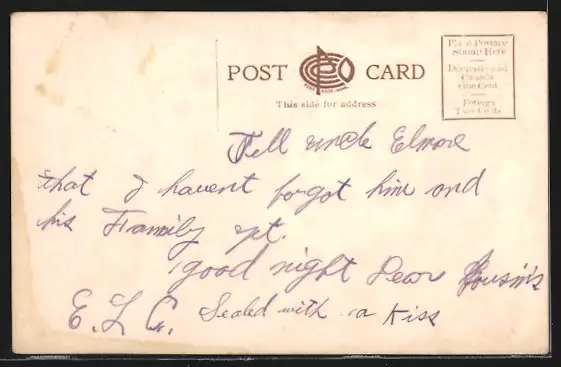 POST CARD
This side for address
Place Postage
Stamp Here
Domestic and
Canada
One Cent
Foreign
Two Cents
Tell uncle Elmore
that I havent forgot him and
his Family yet.
good night Dear Cousin's
E. L. G. Sealed with a Kiss